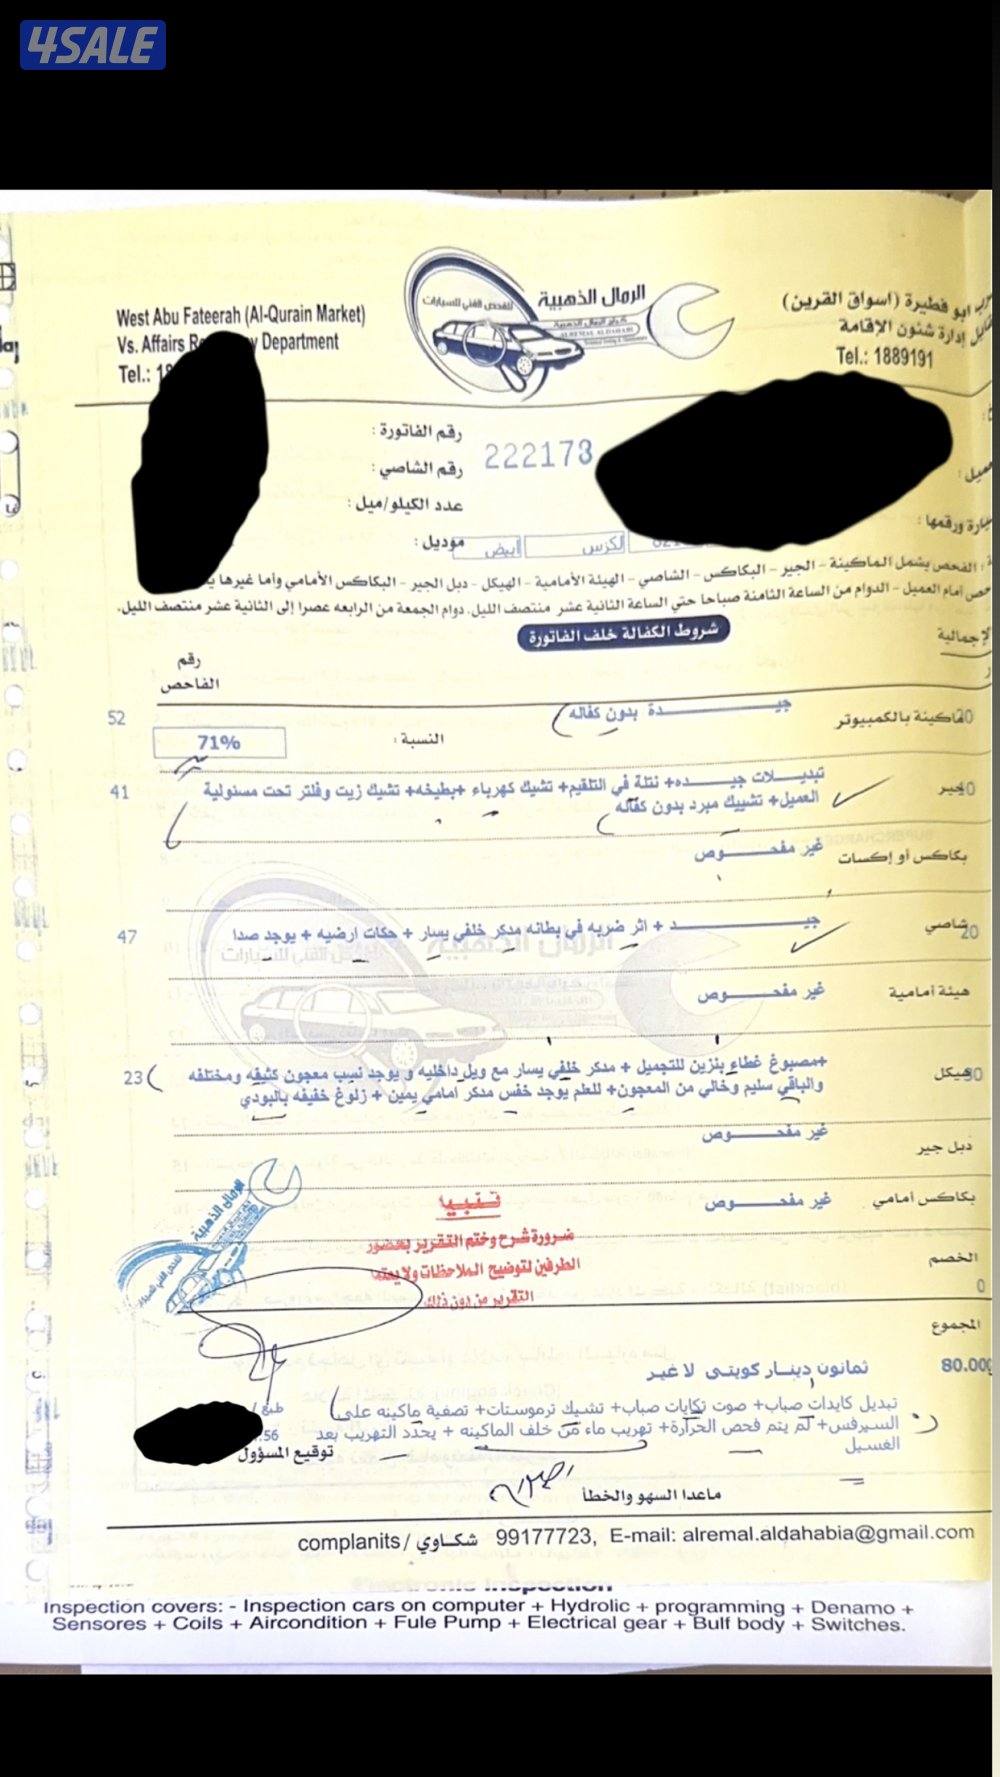 4SALE
الرمال الذهبية
للفحص الفني للسيارات
كراج الرمال الذهبية
ALREMAL ALDAHABI
West Abu Fateerah (Al-Qurain Market)
Vs. Affairs Department
Tel.:
ابو فطيرة (اسواق القرين)
إدارة شئون الإقامة
Tel.: 1889191
رقم الفاتورة :
222173
رقم الشاصي :
عدد الكيلو/ميل :
ورقمها :
موديل :
أبيض
لكزس
الفحص يشمل الماكينة - الجير - البكاكس - الشاصي - الهيئة الأمامية - الهيكل - دبل الجير - البكاكس الأمامي وأما غيرها
أمام العميل - الدوام من الساعة الثامنة صباحا حتي الساعة الثانية عشر منتصف الليل. دوام الجمعة من الرابعه عصرا إلى الثانية عشر منتصف الليل.
شروط الكفالة خلف الفاتورة
رقم
الفاحص
بالكمبيوتر
جيـــدة بدون كفاله
52
النسبة :
71%
تبديـلات جيـده+ نتلة في التلقيم+ تشيك كهرباء +بطيخه+ تشيك زيت وفلتر تحت مسئولية
العميل+ تشييك مبرد بدون كفاله
41
بكاكس أو إكسات
غير مفحـــوص
شاصي
20
جيـــد + اثر ضربه في بطانه مدكر خلفي يسار + حكات ارضيه + يوجد صدا
47
هيئة أمامية
غير مفحـــوص
هيكل
+مصبوغ غطاء بنزين للتجميل + مدكر خلفي يسار مع ويل داخليه و يوجد نسب معجون كثيفه ومختلفه
والباقي سليم وخالي من المعجون+ للعلم يوجد خفس مدكر امامي يمين + زلوغ خفيفه بالبودي
23
دبل جير
غير مفحـــوص
بكاكس أمامي
غير مفحـــوص
تنبيه
ضرورة شرح وختم التقرير بحضور
الطرفين لتوضيح الملاحظات ولا يعتمد
التقرير من دون ذلك
الرمال الذهبية
الخصم
0
المجموع
80.000
ثمانون دينار كويتى لا غير
تبديل كايدات صباب+ صوت تكايات صباب+ تشيك ترموستات+ تصفية ماكينه على
السيرفس+ لم يتم فحص الحرارة+ تهريب ماء من خلف الماكينه + يحدد التهريب بعد
الغسيل
توقيع المسؤول
ماعدا السهو والخطأ
complanits / شكاوي 99177723, E-mail: alremal.aldahabia@gmail.com
Electronic Inspection
Inspection covers: - Inspection cars on computer + Hydrolic + programming + Denamo +
Sensores + Coils + Aircondition + Fule Pump + Electrical gear + Bulf body + Switches.